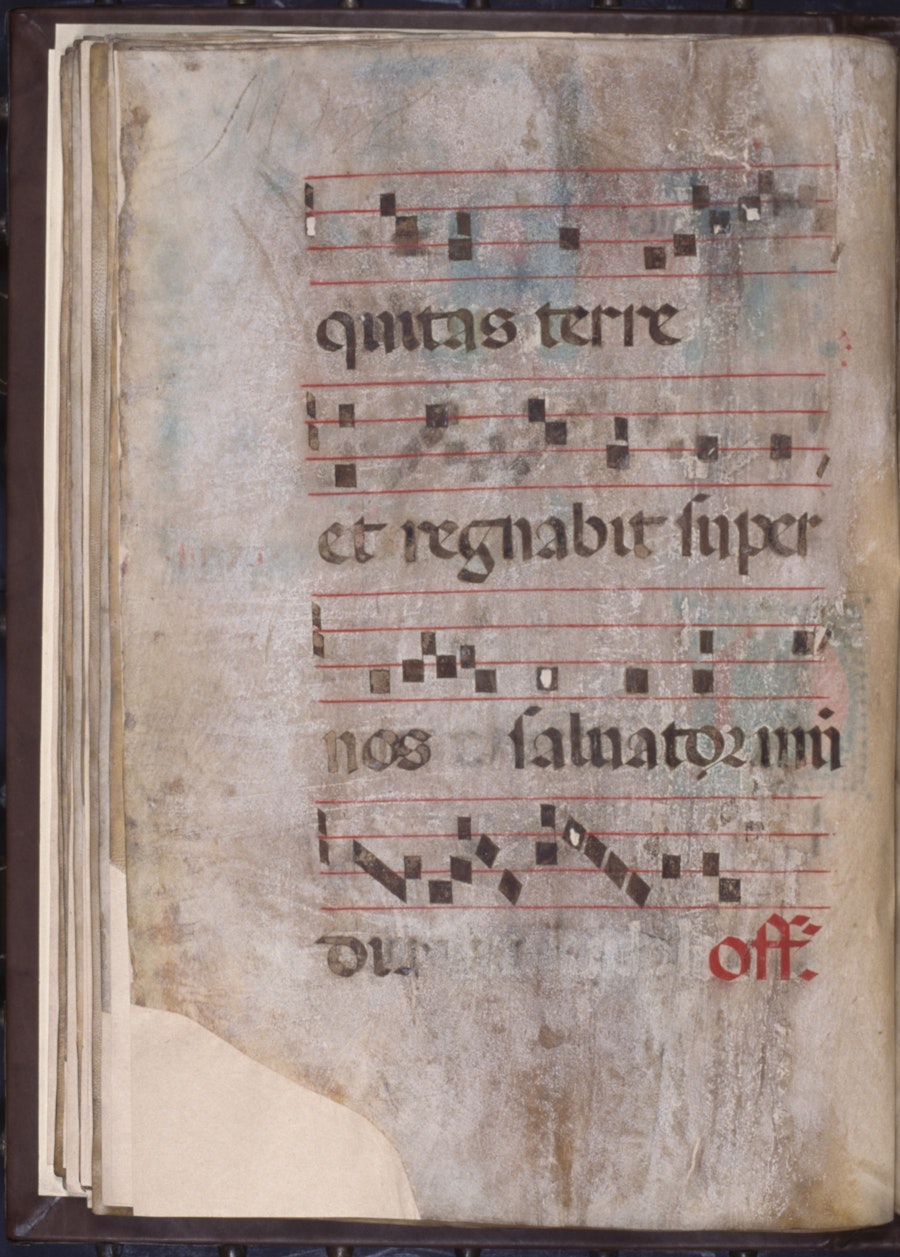 quitas terre
et regnabit super
nos saluator mũ
di.
off̃.